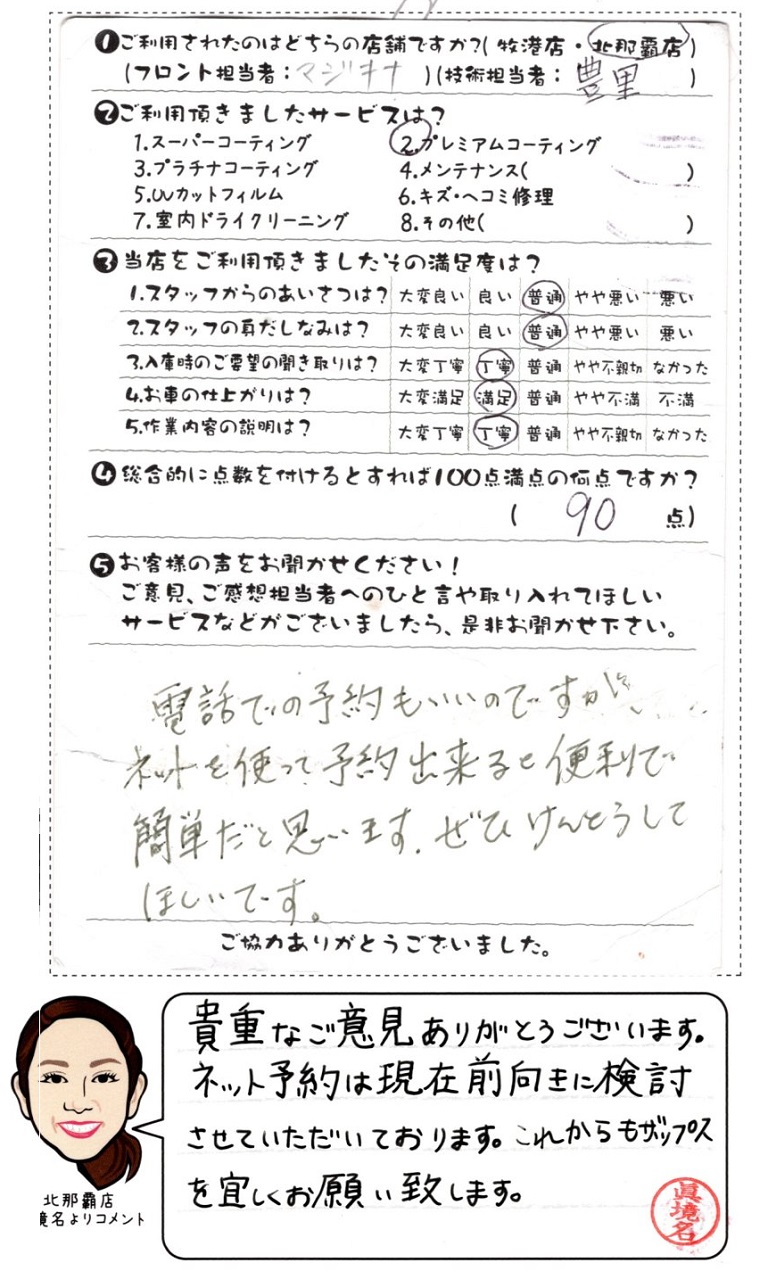 ❶ご利用されたのはどちらの店舗ですか?(牧港店・北那覇店)
(フロント担当者:マジキナ)(技術担当者:豊里)
❷ご利用頂きましたサービスは?
1.スーパーコーティング 2.プレミアムコーティング
3.プラチナコーティング 4.メンテナンス( )
5.UVカットフィルム 6.キズ・ヘコミ修理
7.室内ドライクリーニング 8.その他( )
❸当店をご利用頂きましたその満足度は?
1.スタッフからのあいさつは? 大変良い 良い 普通 やや悪い 悪い
2.スタッフの身だしなみは? 大変良い 良い 普通 やや悪い 悪い
3.入庫時のご要望の聞き取りは? 大変丁寧 丁寧 普通 やや不親切 なかった
4.お車の仕上がりは? 大変満足 満足 普通 やや不満 不満
5.作業内容の説明は? 大変丁寧 丁寧 普通 やや不親切 なかった
❹総合的に点数を付けるとすれば100点満点の何点ですか?
( 90 点)
❺お客様の声をお聞かせください!
ご意見、ご感想担当者へのひと言や取り入れてほしい
サービスなどがございましたら、是非お聞かせ下さい。
電話での予約もいいのですが
ネットを使って予約出来ると便利で
簡単だと思います。ぜひけんとうして
ほしいです。
ご協力ありがとうございました。
貴重なご意見ありがとうございます。
ネット予約は現在前向きに検討
させていただいております。これからもザップス
を宜しくお願い致します。
眞境名
北那覇店
境名よりコメント